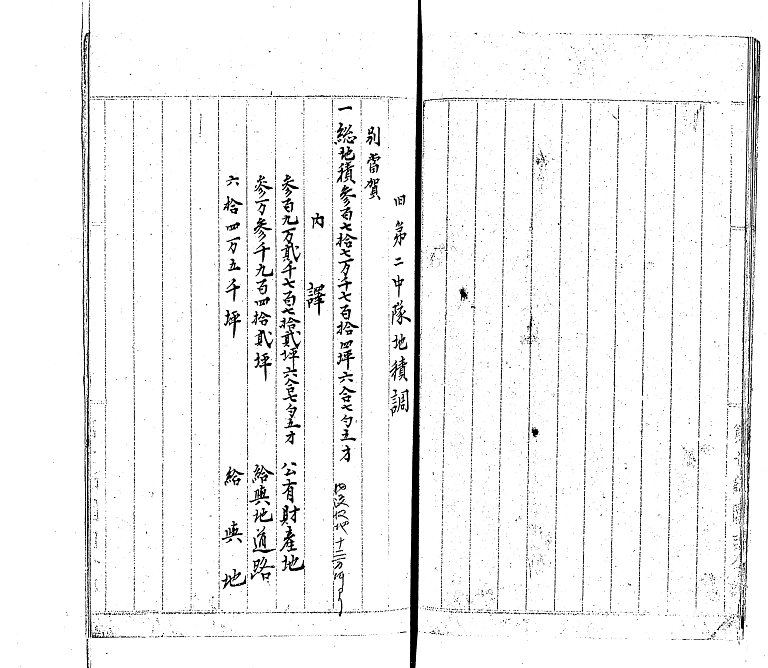 旧第二中隊地積調
別當賀
一総地積参百七拾七万千七百拾四坪六合七勺五才
内譯
参百九万貳千七百七拾貳坪六合七勺五才 公有財産地
参万参千九百四拾貳坪 給與地道路
六拾四万五千坪 給與地